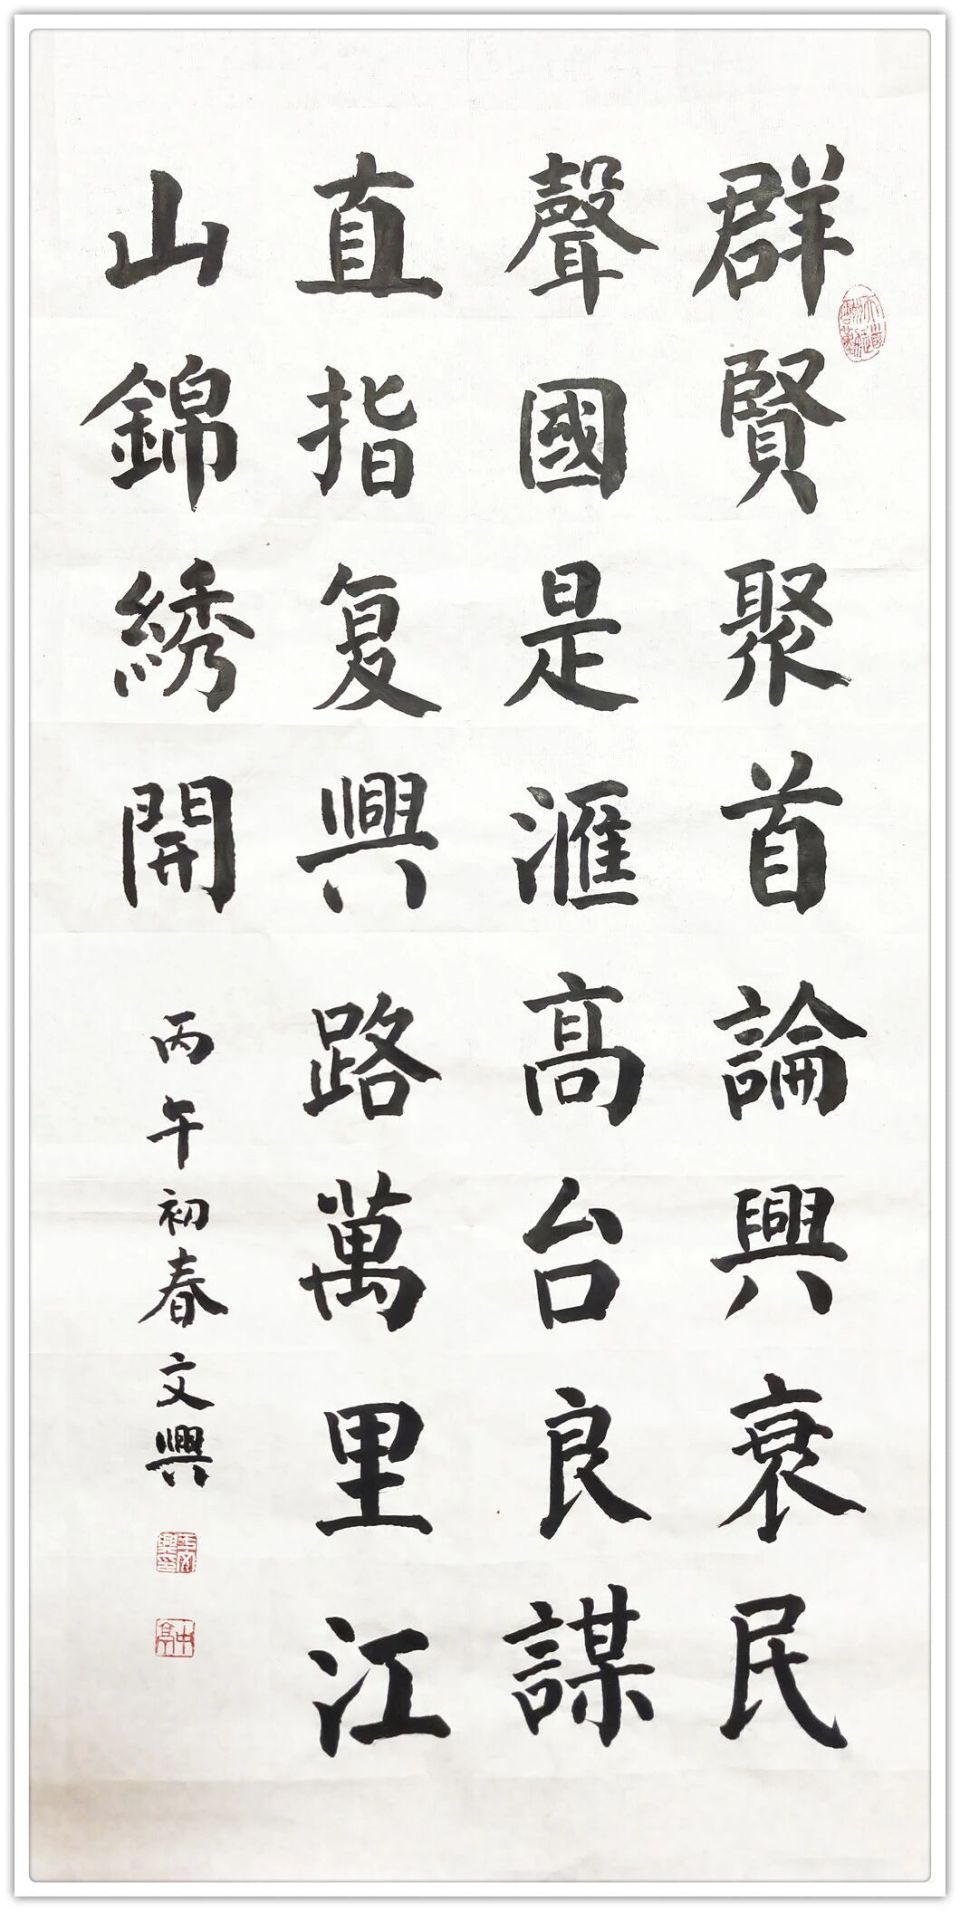 群賢聚首論興衰民
聲國是滙高台良謀
直指复興路萬里江
山錦綉開
丙午初春文興